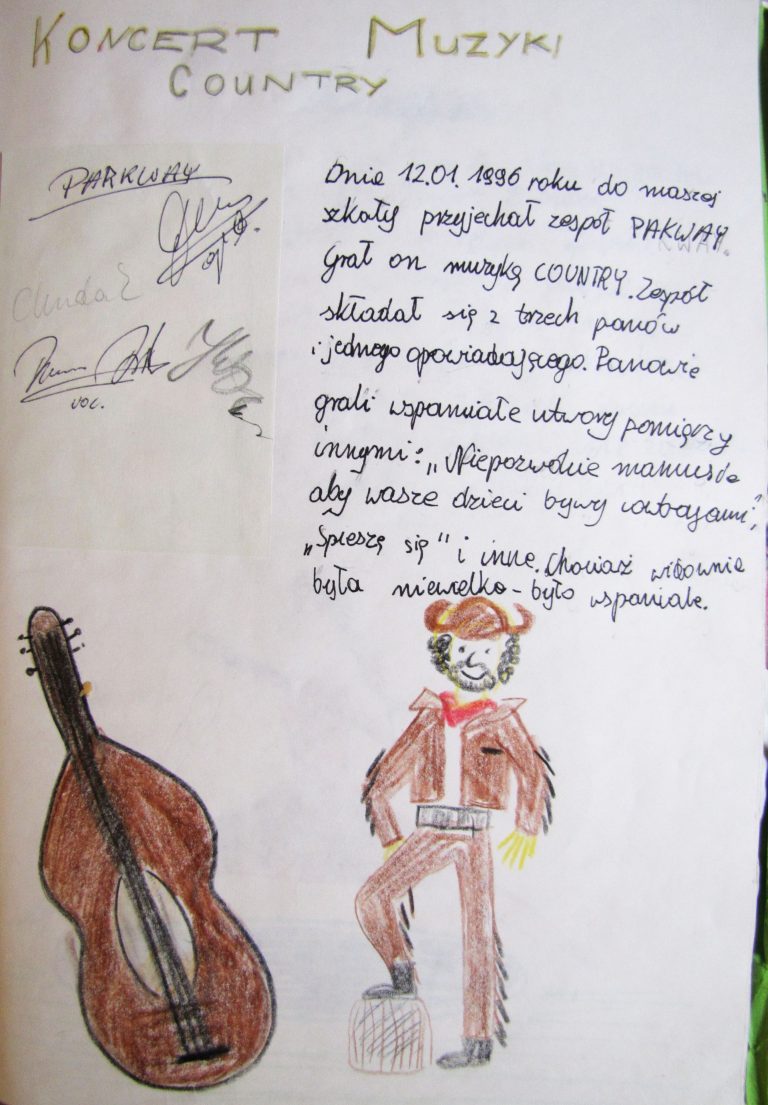 KONCERT MUZYKI
COUNTRY
PARKWAY
voc.
Dnia 12.01.1996 roku do naszej
szkoły przyjechał zespół PAKWAY.
Grał on muzykę COUNTRY. Zespół
składał się z trzech panów
i jednego opowiadającego. Panowie
grali wspaniałe utwory pomiędzy
innymi: „Niepozwólcie mamusie
aby wasze dzieci
„Spieszę się" i inne. Chociaż widownia
była niewielka - było wspaniale.